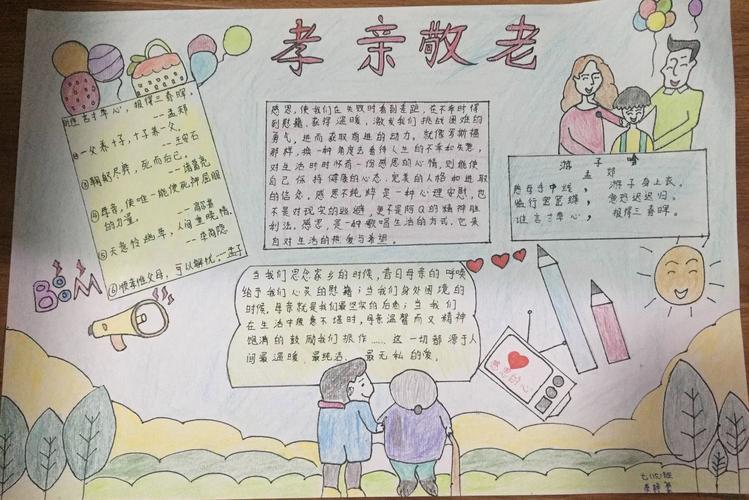 孝亲敬老
谁言寸草心，报得三春晖。
--孟郊
②一父养十子，十子养一父。
--王安石
③鞠躬尽瘁，死而后已。
--诸葛亮
④母亲，使唯一能使死神屈服
的力量。
--高尔基
⑤天意怜幽草，人间重晚情。
--李商隐
⑥惟孝顺父母，可以解忧。--孟子
感恩，使我们在失败时看到差距，在不幸时得
到慰藉、获得温暖，激发我们挑战困难的
勇气，进而获取前进的动力。就像罗斯福
那样，换一种角度去看待人生的不幸和失意，
对生活时时怀有一份感恩的心情，则能使
自己保持健康的心态、完美的人格和进取
的信念。感恩不纯粹是一种心理安慰，也
不是对现实的逃避，更不是阿Q的精神胜
利法。感恩，是一种歌唱生活的方式，它来
自对生活的热爱与希望。
游子吟
孟郊
慈母手中线，游子身上衣。
临行密密缝，意恐迟迟归。
谁言寸草心，报得三春晖。
BOOM
当我们思念家乡的时候，昔日母亲的呼唤
给予我们心灵的慰藉；当我们身处困境的
时候，母亲就是我们最坚实的后盾；当我们
在生活中疲惫不堪时，母亲温馨而又精神
饱满的鼓励我们振作……这一切都源于人
间最温暖、最纯洁、最无私的爱。
感恩的心
七(15)班